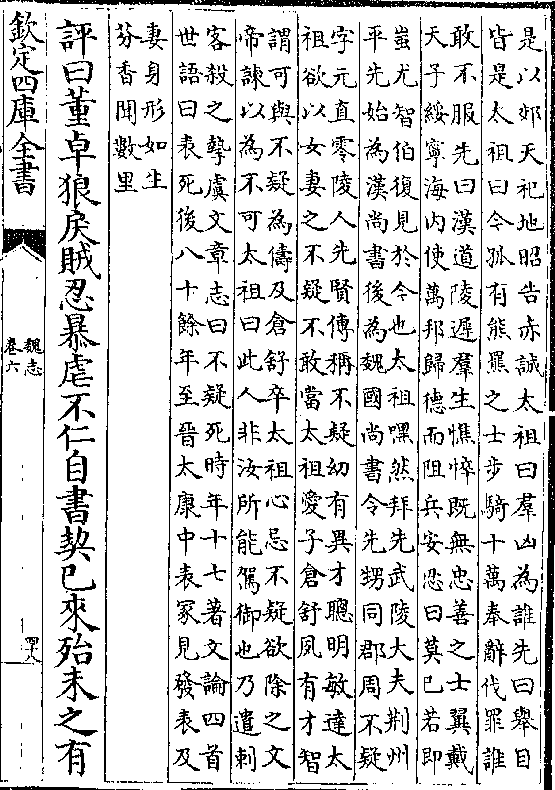 是以郊天祀地昭告赤誠太祖曰羣凶為誰先曰舉目
皆是太祖曰今孤有熊羆之士步騎十萬奉辭伐罪誰
敢不服先曰漢道陵遲羣生憔悴既無忠善之士翼戴
天子綏寧海内使萬邦歸德而阻兵安忍曰莫己若即
蚩尤智伯復見於今也太祖嘿然拜先武陵大夫荆州
平先始為漢尚書後為魏國尚書令先甥同郡周不疑
字元直零陵人先賢傳稱不疑幼有異才聰明敏達太
祖欲以女妻之不疑不敢當太祖愛子倉舒夙有才智
謂可與不疑為儔及倉舒卒太祖心忌不疑欲除之文
帝諫以為不可太祖曰此人非汝所能駕御也乃遣刺
客殺之摯虞文章志曰不疑死時年十七著文論四首
世語曰表死後八十餘年至晉太康中表冢見發表及
妻身形如生
芬香聞數里
評曰董卓狼戾賊忍暴虐不仁自書契已來殆未之有
欽定四庫全書
魏志
卷六